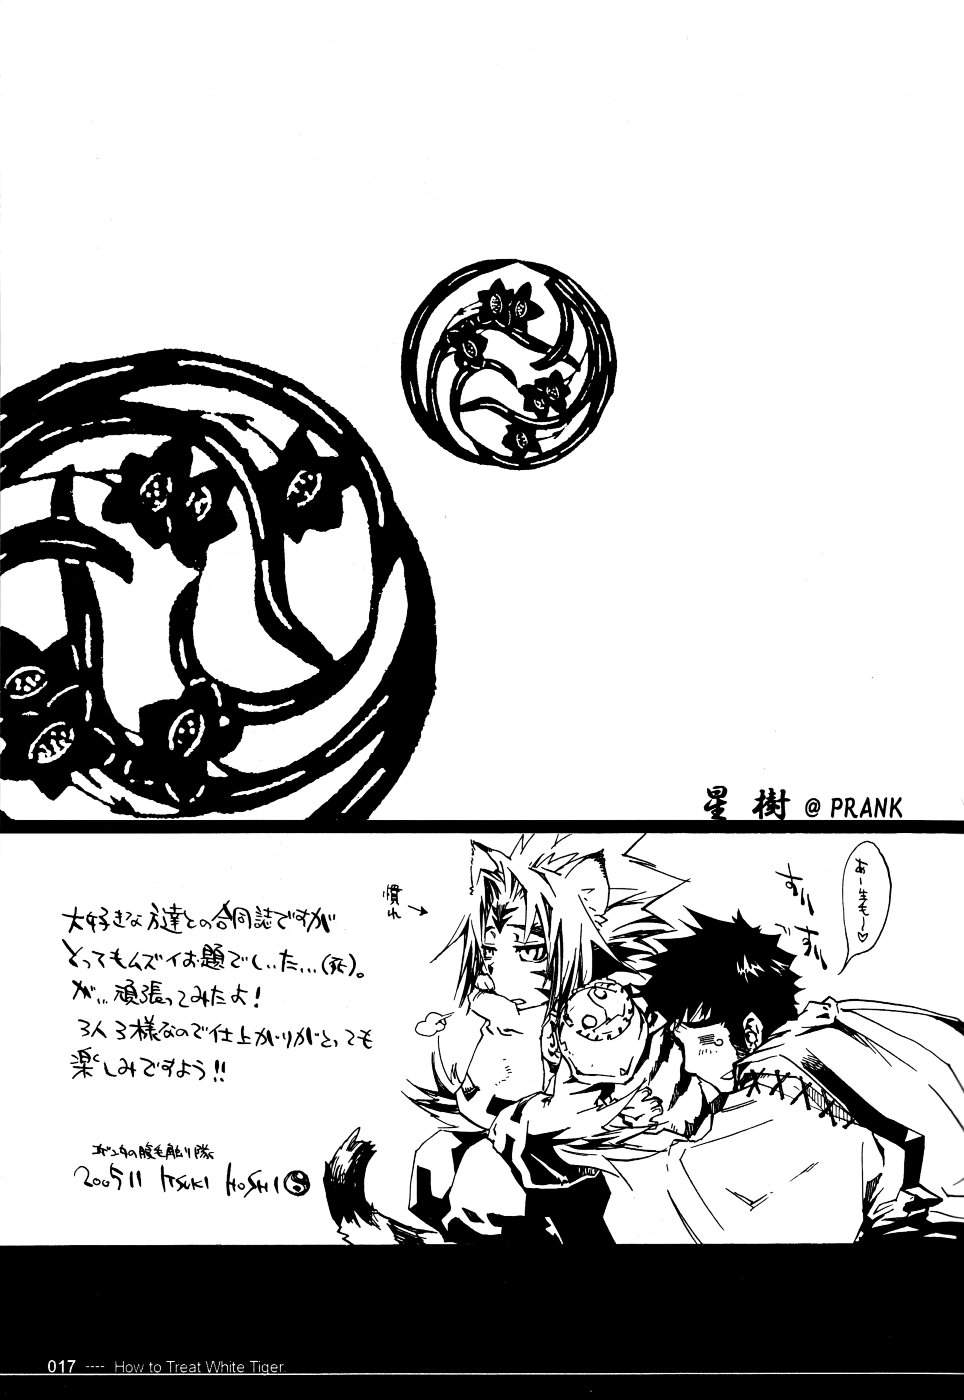 星樹 @ PRANK
あー生もー♡
すりすり
慣れ→
大好きな方達との合同誌ですが
とってもムズイお題でしした…(死)。
が…頑張ってみたよ!
3人3様なので仕上がりがとっても
楽しみですよう!!
2005 11 ITSUKI HOSHI
017 ---- How to Treat White Tiger